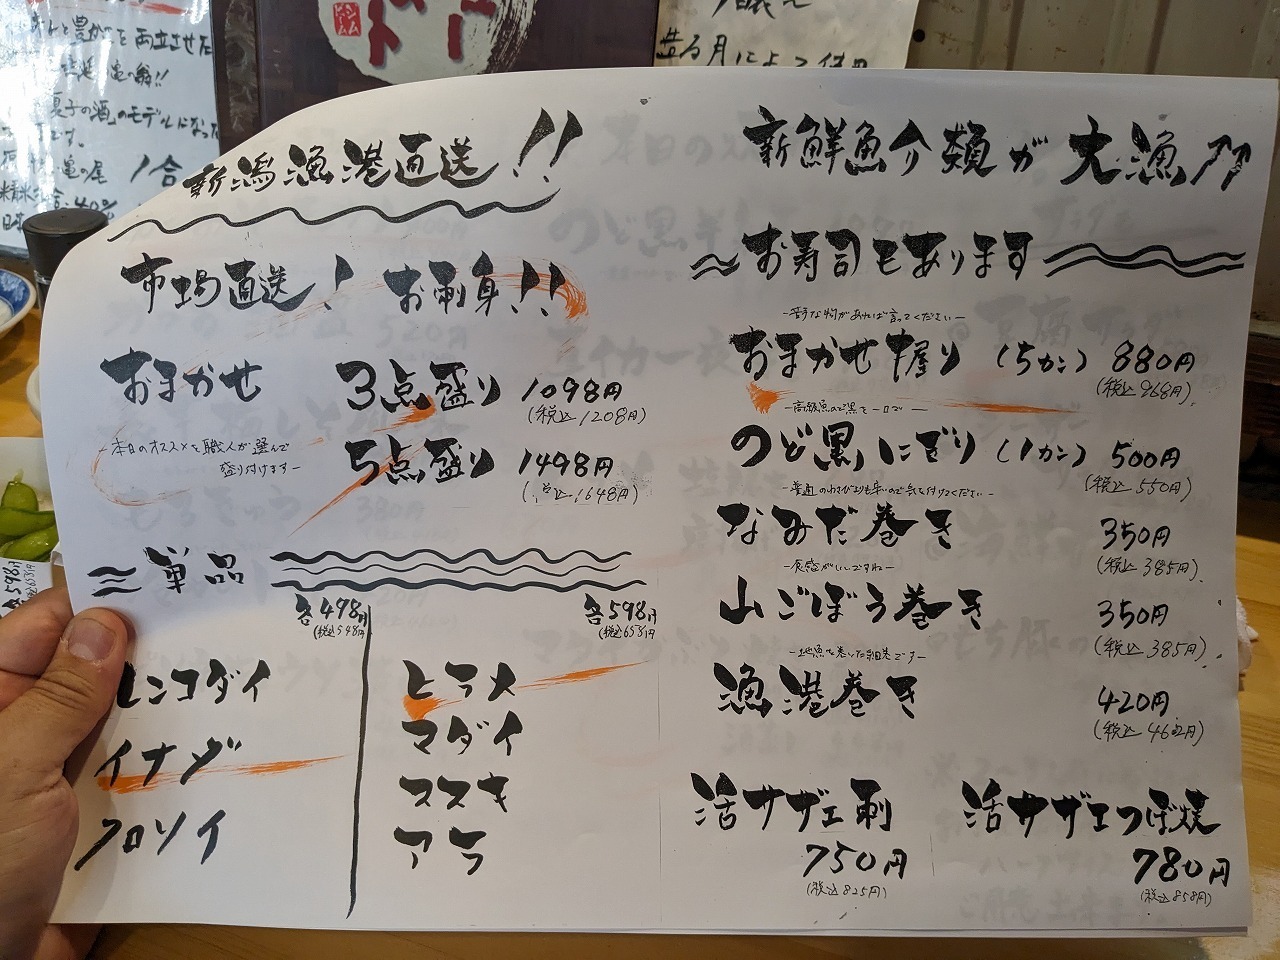 造る月によって
夏子の酒」のモデルになった
1合
新潟漁港直送!!
市場直送! お刺身!!
おまかせ 3点盛り 1098円
(税込1208円)
-本日のオススメを職人が選んで
盛り付けます-
5点盛り 1498円
(税込1648円)
単品
各498円
(税込548円)
レンコダイ
イナダ
クロソイ
各598円
(税込658円)
ヒラメ
マダイ
ススキ
アラ
新鮮魚介類が大漁
お寿司もあります
-苦手な物があれば言ってください-
おまかせ握り (5カン) 880円
(税込968円)
-高級魚のど黒を一口で-
のど黒にぎり (1カン) 500円
(税込550円)
-普通のわさびよりも辛いので気を付けてください-
なみだ巻き 350円
(税込385円)
-食感がいいですね-
山ごぼう巻き 350円
(税込385円)
-地魚を巻いた細巻です-
漁港巻き 420円
(税込462円)
活サザエ刺
750円
(税込825円)
活サザエつぼ焼
780円
(税込858円)